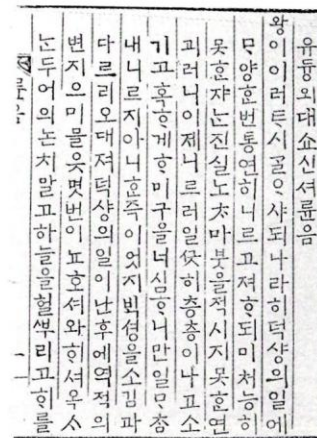 유듕외대쇼신셔륜음
왕이이러트시ᄀᆞᆯᄋᆞ샤되나라히덕샹의일에
ᄆᆞᄋᆞᆷ양ᄒᆞᆫ번통연히니르고져ᄒᆞ되미처능히
못ᄒᆞᆫ쟈ᄂᆞᆫ진실노ᄎᆞ마붓을적시지못ᄒᆞᆫ연
괴러니이제니르러일ᄭᅳᆺ히층층이나고소
기고혹ᄒᆞ게ᄒᆞ미구을너심ᄒᆞ니만일ᄆᆞᄎᆞᆷ
내니르지아니ᄒᆞᆫ즉이엇지ᄇᆡᆨ셩을소김과
다ᄅᆞ리오대져덕샹의일이난후에역적의
변지으미믈읏몃번이뇨호셔와ᄒᆡ셔옥ᄉᆞ
ᄂᆞᆫ두어의논치말고하ᄂᆞᆯ을헐ᄲᅮ리고ᄒᆡ를
륜음
一